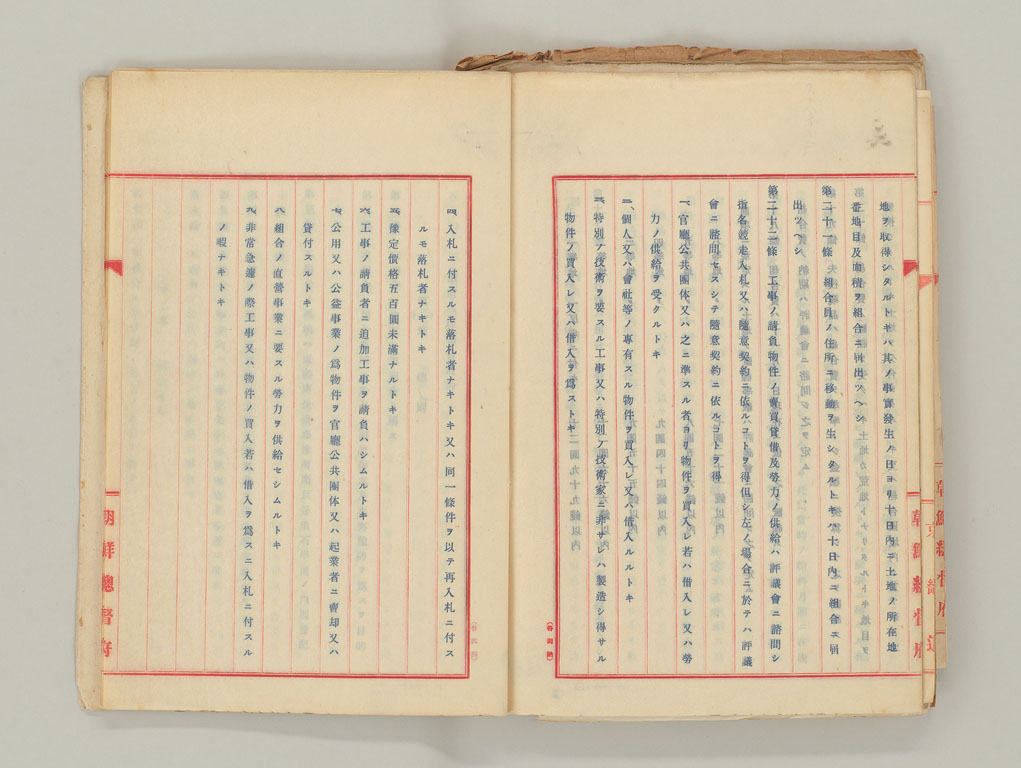 地ヲ取得シタルトキハ其ノ事實發生ノ日ヨリ十日內ニ土地ノ所在地
番地目及面積ヲ組合ニ届出ツヘシ
第二十一條 組合員ノ住所ニ移動ヲ生シタルトキハ十日內ニ組合ニ届
出ツヘシ
第二十二條 工事ノ請負物件ノ賣買貸借及勞力ノ供給ハ評議會ニ諮問シ
指名競走入札又ハ隨意契約ニ依ルコトヲ得但シ左ノ場合ニ於テハ評議
會ニ諮問セスシテ隨意契約ニ依ルコトヲ得
一、官廳公共團体又ハ之ニ準スル者ヨリ物件ヲ買入レ若ハ借入レ又ハ勞
力ノ供給ヲ受クルトキ
二、個人又ハ會社等ノ專有スル物件ヲ買入レ又ハ借入ルルトキ
三、特別ノ技術ヲ要スル工事又ハ特別ノ技術家ニ非サレハ製造シ得サル
物件ノ買入レ又ハ借入ヲ爲ストキ
四、入札ニ付スルモ落札者ナキトキ又ハ同一條件ヲ以テ再入札ニ付ス
ルモ落札者ナキトキ
五、豫定價格五百圓未滿ナルトキ
六、工事ノ請負者ニ追加工事ヲ請負ハシムルトキ
七、公用又ハ公益事業ノ爲物件ヲ官廳公共團体又ハ起業者ニ賣却又ハ
貸付スルトキ
八、組合ノ直營事業ニ要スル勞力ヲ供給セシムルトキ
九、非常急遽ノ際工事又ハ物件ノ買入若ハ借入ヲ爲スニ入札ニ付スル
ノ暇ナキトキ
朝鮮總督府
朝鮮總督府